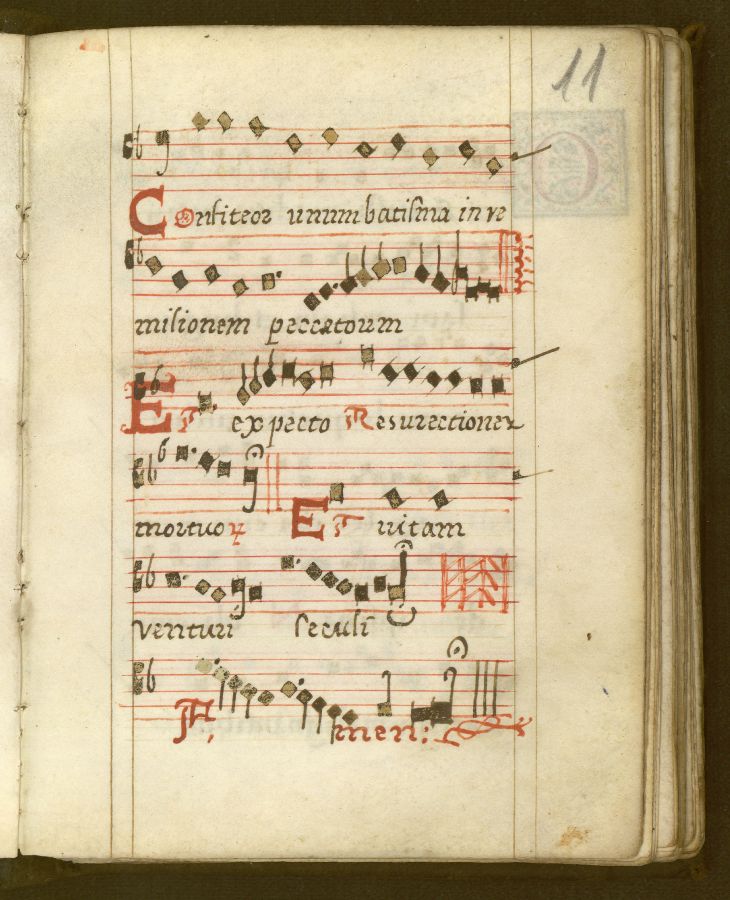 11
Confiteor unum batisma in re
misionem peccatoum
Et expecto Resurectionem
mortuoꝝ Et vitam
venturi seculi
Amen: